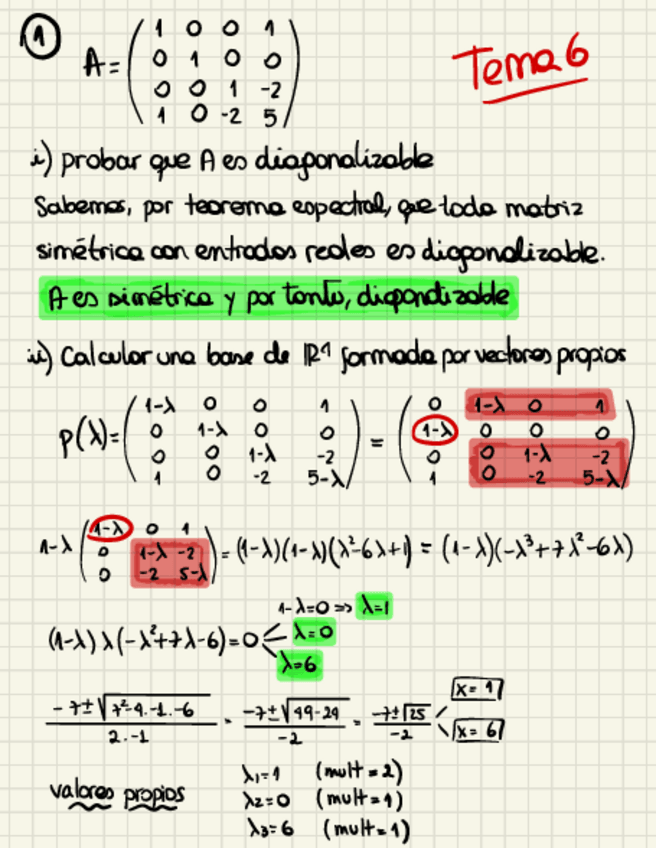 1 A = ( 1 0 0 1
0 1 0 0
0 0 1 -2
1 0 -2 5 )
Tema 6
i) probar que A es diagonalizable
Sabemos, por teorema espectral, que toda matriz
simétrica con entradas reales es diagonalizable.
A es simétrica y por tanto, diagonalizable
ii) Calcular una base de ℝ⁴ formada por vectores propios
p(λ) = ( 1-λ 0 0 1 ) = ( 0 1-λ 0 1 )
( 0 1-λ 0 0 ) ( 1-λ 0 0 0 )
( 0 0 1-λ -2 ) ( 0 0 1-λ -2 )
( 1 0 -2 5-λ ) ( 1 0 -2 5-λ )
1-λ ( 1-λ 0 1
0 1-λ -2
0 -2 5-λ ) = (1-λ)(1-λ)(λ²-6λ+1) = (1-λ)(-λ³+7λ²-6λ)
1-λ=0 => λ=1
(1-λ) λ (-λ²+7λ-6) = 0 λ=0
λ=6
-7±√7²-4·-1·-6 / 2·-1 = -7±√49-24 / -2 = -7±√25 / -2
x=1
x=6
valores propios
λ₁=1 (mult=2)
λ₂=0 (mult=1)
λ₃=6 (mult=1)